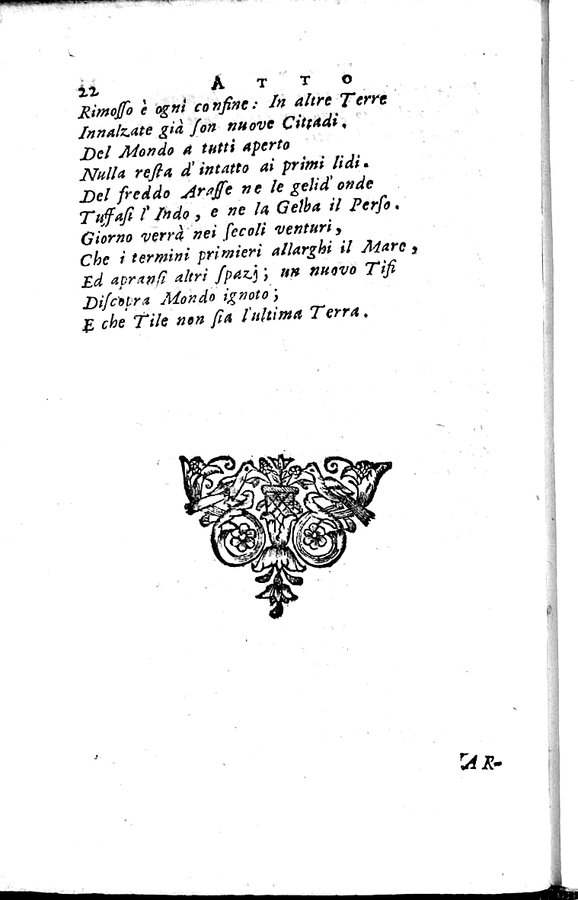 22 ATTO
Rimoſſo è ogni confine: In altre Terre
Innalzate già ſon nuove Cittadi.
Del Mondo a tutti aperto
Nulla reſta d'intatto ai primi lidi.
Del freddo Araſſe ne le gelid' onde
Tuffaſi l' Indo, e ne la Gelba il Perſo.
Giorno verrà nei ſecoli venturi,
Che i termini primieri allarghi il Mare,
Ed apranſi altri ſpazj; un nuovo Tifi
Diſcopra Mondo ignoto;
E che Tile non ſia l'ultima Terra.
AR-